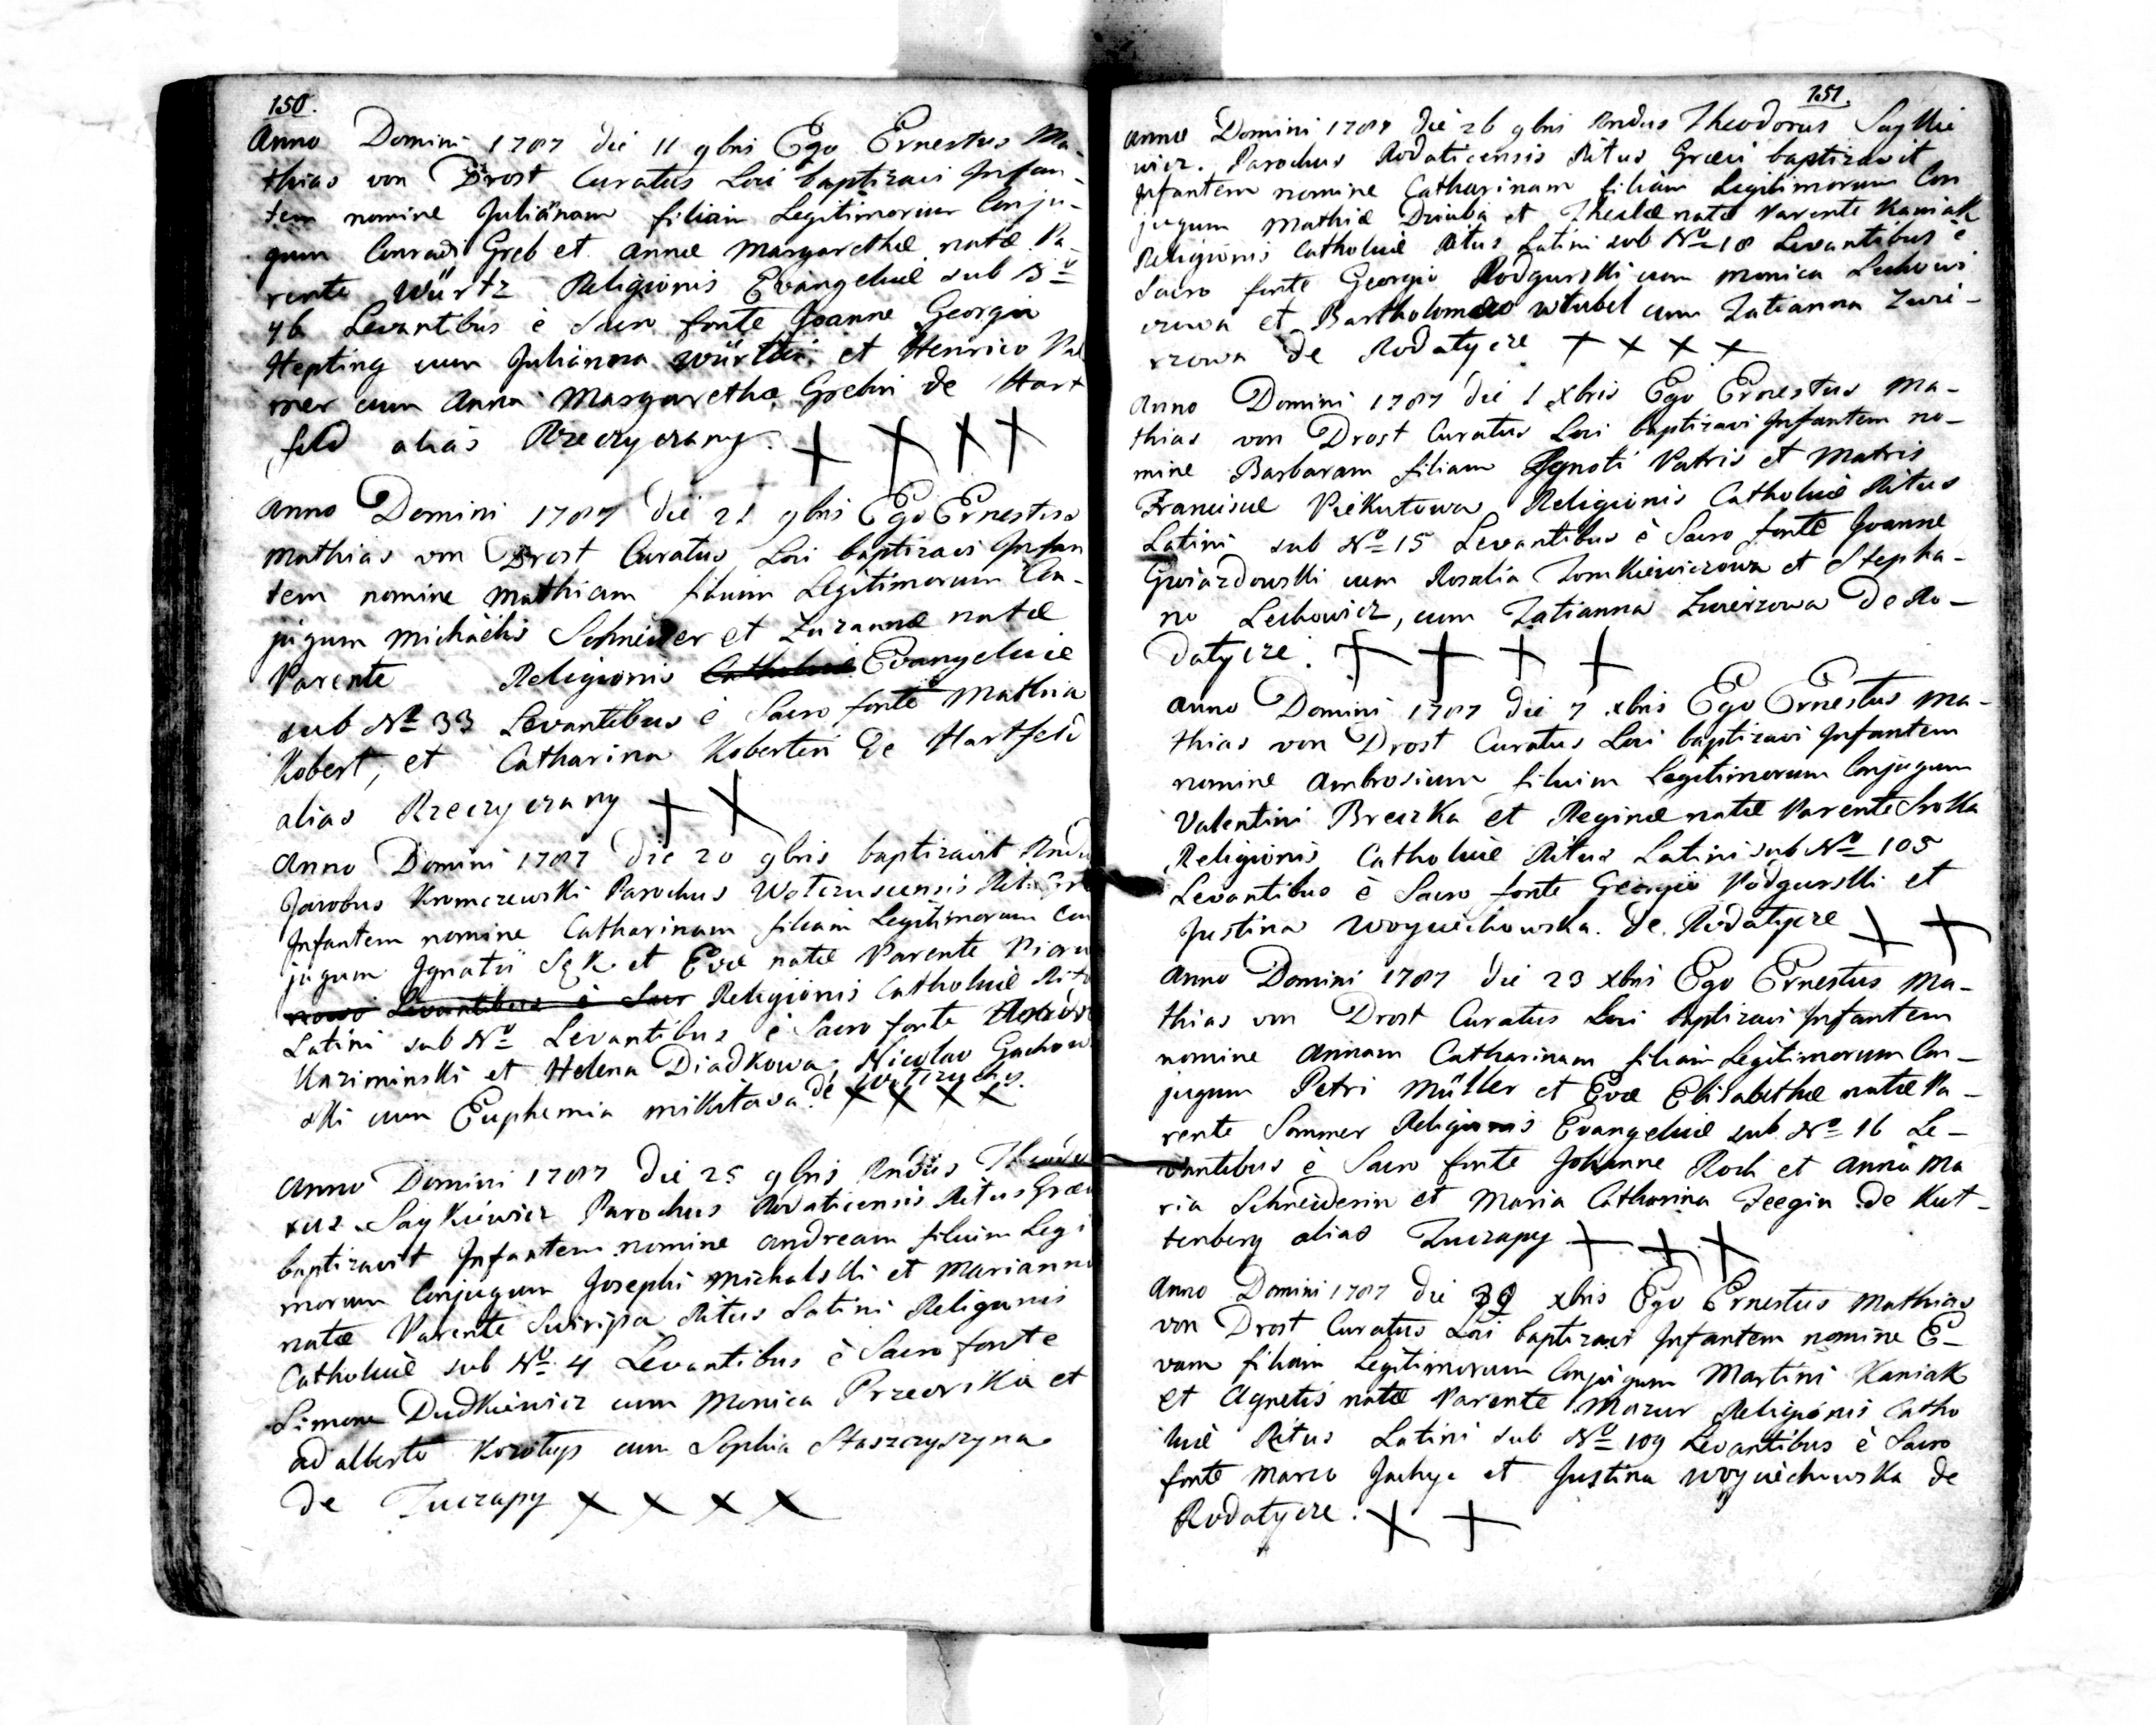 150.
Anno Domini 1787 die 11 9bris Ego Ernestus Ma-
thias von Drost Curatus Loci baptizavi Infan-
tem nomine Juliānam filiam Legitimorum Conju-
gum Conradi Greb et Annæ Margarethæ natæ Pa-
rente Würtz Religionis Evangelicæ sub No
46 Levantibus è Sacro fonte Joanne Georgio
Hepting cum Julianna Würtzi et Henrico
mer cum Anna Margaretha Grebin de Hart
feld alias Rzeczyczany. + + + +
Anno Domini 1787 die 21 9bris Ego Ernestus
Mathias von Drost Curatus Loci baptizavi Infan
tem nomine Mathiam filium Legitimorum Con-
jugum Michaelis Schneider et Zuzannæ natæ
Parente Religionis Catholicæ Evangelicæ
sub No 33 Levantibus è Sacro fonte Mathia
Kobert, et Catharina Kobertin de Hartfeld
alias Rzeczyczany + +
Anno Domini 1787 die 20 9bris baptizavit Rndus
Jacobus Kromczewski Parochus
Infantem nomine Catharinam filiam Legitimorum Con
jugum Ignatii Sęk et Evæ natæ Parente
Levantibus è Sacr Religionis Catholicæ Rit
Latini sub No Levantibus è Sacro fonte
Kaziminski et Helena Diadkowa; Nicolao
ski cum Euphemia Mikitowa de + + + +
Anno Domini 1787 die 25 9bris Rndus Theodo
rus Saykiewicz Parochus Rodaticensis Ritus Græci
baptizavit Infantem nomine Andream filium Legi
morum Conjugum Josephi Michalski et Marianna
natæ Parente Ritus Latini Religionis
Catholicæ sub No 4 Levantibus è Sacro fonte
Simone Dudkiewicz cum Monica et
Adalberto Korotys cum Sophia Staszczyszyna
de Tuczapy + + + +
151.
Anno Domini 1787 die 26 9bris Rndus Theodorus Saykie
wicz. Parochus Rodaticensis Ritus Græci baptizavit
Infantem nomine Catharinam filiam Legitimorum Con
jugum Mathiæ Dziuba et Theclæ natæ Parente Kaniak
Religionis Catholicæ Ritus Latini sub No 18 Levantibus è
Sacro fonte Georgio Podgurski cum Monica Lechowi
czowa et Bartholomæo Wrubel cum Tatianna Zwie-
rzowa de Rodatycze + + + +
Anno Domini 1787 die 1 xbris Ego Ernestus Ma-
thias von Drost Curatus Loci baptizavi Infantem no-
mine Barbaram filiam Ignoti Patris et Matris
Franciscæ Piekutowa Religionis Catholicæ Ritus
Latini sub No 15 Levantibus è Sacro fonte Joanne
Gwiazdowski cum Rosalia Tomkiewiczowa et Stepha-
no Lechowicz, cum Tatianna Zwierzowa de Ro-
datycze. + + + +
Anno Domini 1787 die 7 xbris Ego Ernestus Ma-
thias von Drost Curatus Loci baptizavi Infantem
nomine Ambrosium filium Legitimorum Conjugum
Valentini Breczka et Reginæ natæ Parente Sroka
Religionis Catholicæ Ritus Latini sub No 105
Levantibus è Sacro fonte Georgio Podgurski et
Justina Woyciechowska. de Rodatycze + +
Anno Domini 1787 die 23 xbris Ego Ernestus Ma-
thias von Drost Curatus Loci baptizavi Infantem
nomine Annam Catharinam filiam Legitimorum Con-
jugum Petri Müller et Evæ Elisabethæ natæ Pa-
rente Sommer Religionis Evangelicæ sub No 16 Le-
vantibus è Sacro fonte Johanne Roch et Anna Ma
ria Schneiderin et Maria Catharina Jeegin de Kut-
tenberg alias Tuczapy + + +
Anno Domini 1787 die xbris Ego Ernestus Mathias
von Drost Curatus Loci baptizavi Infantem nomine E-
vam filiam Legitimorum Conjugum Martini Kaniak
et Agnetis natæ Parente Mazur Religionis Catho
licæ Ritus Latini sub No 109 Levantibus è Sacro
fonte Marco et Justina Woyciechowska de
Rodatycze. + +